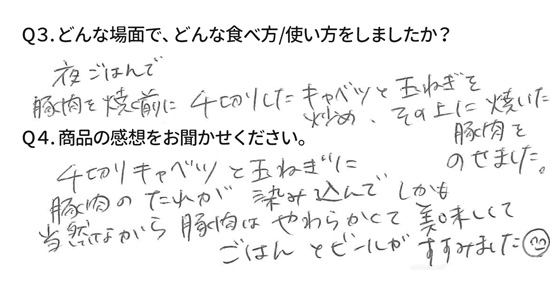 Q3.どんな場面で、どんな食べ方/使い方をしましたか？
夜ごはんで
豚肉を焼く前に千切りしたキャベツと玉ねぎを
炒め、その上に焼いた
豚肉を
のせました。
Q4.商品の感想をお聞かせください。
千切りキャベツと玉ねぎに
豚肉のたれが染み込んでしかも
当然ながら豚肉はやわらかくて美味しくて
ごはんとビールがすすみました